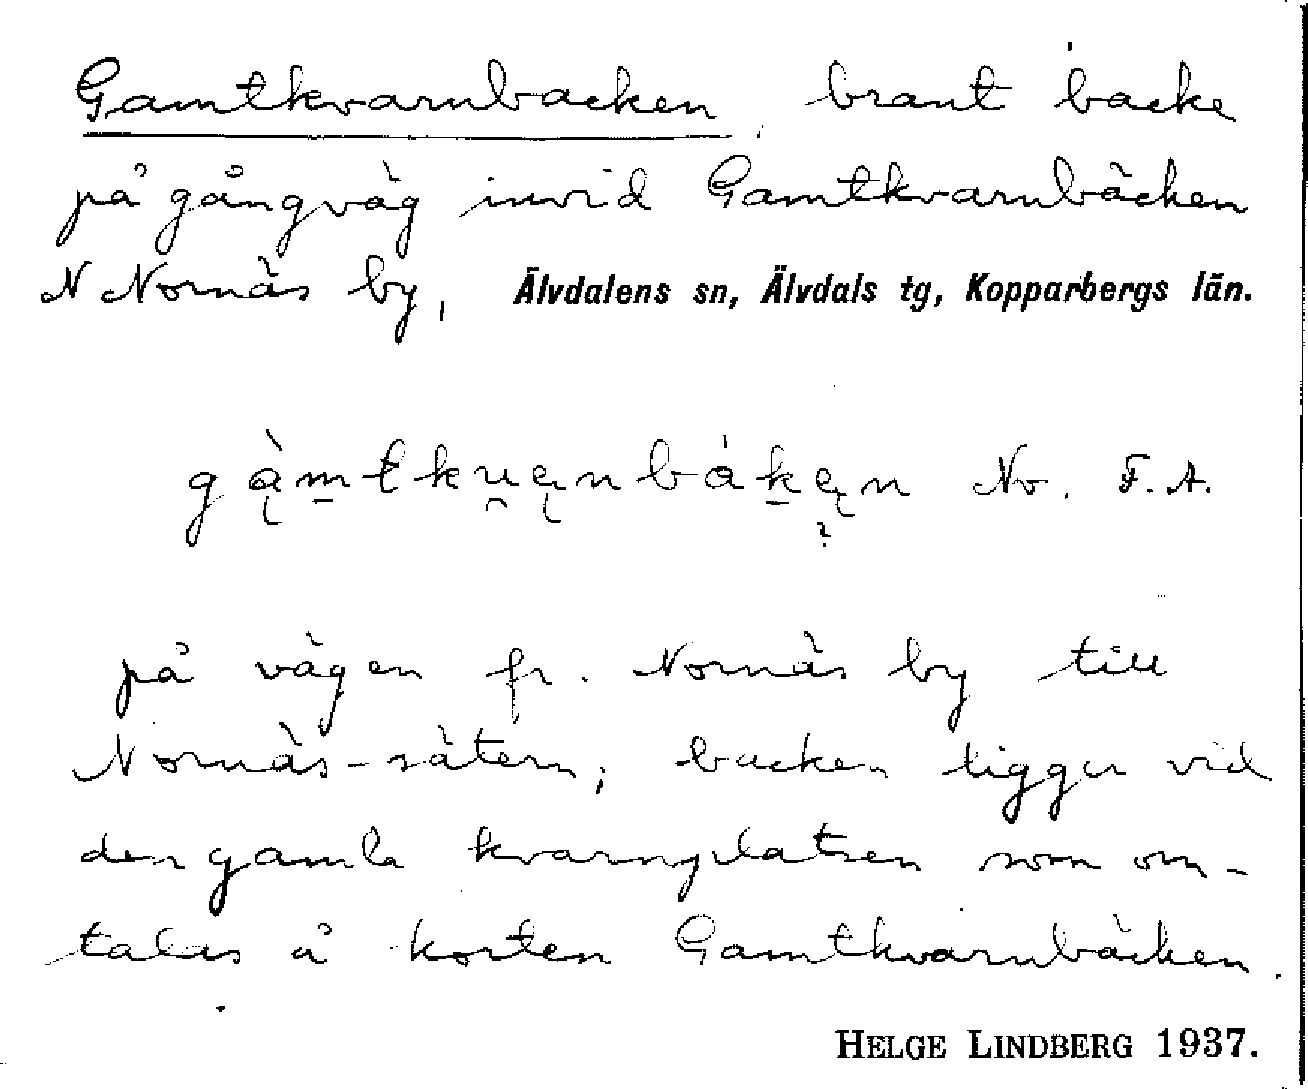 Gamtkvarnbacken, brant backe
på gångväg invid Gamtkvarnbäcken
N Nornäs by, Älvdalens sn, Älvdals tg, Kopparbergs län.
No. F.A.
på vägen fr. Nornäs by till
Nornäs-sätern; backen ligger vid
den gamla kvarnplatsen som om-
talas å korten Gamtkvarnbäcken.
HELGE LINDBERG 1937.